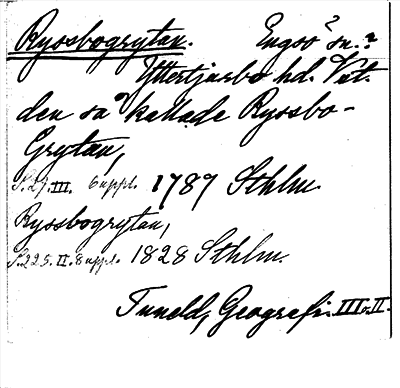 Ryssbogrytan. Engsö? sn.?
Yttertjurbo hd. Vstm.
den så kallade Ryssbo-
Grytan,
S.27. III. 6 uppl. 1787 Sthlm.
Ryssbogrytan,
S.225. II. 8 uppl. 1828 Sthlm.
Tuneld, Geografi. III o. II.